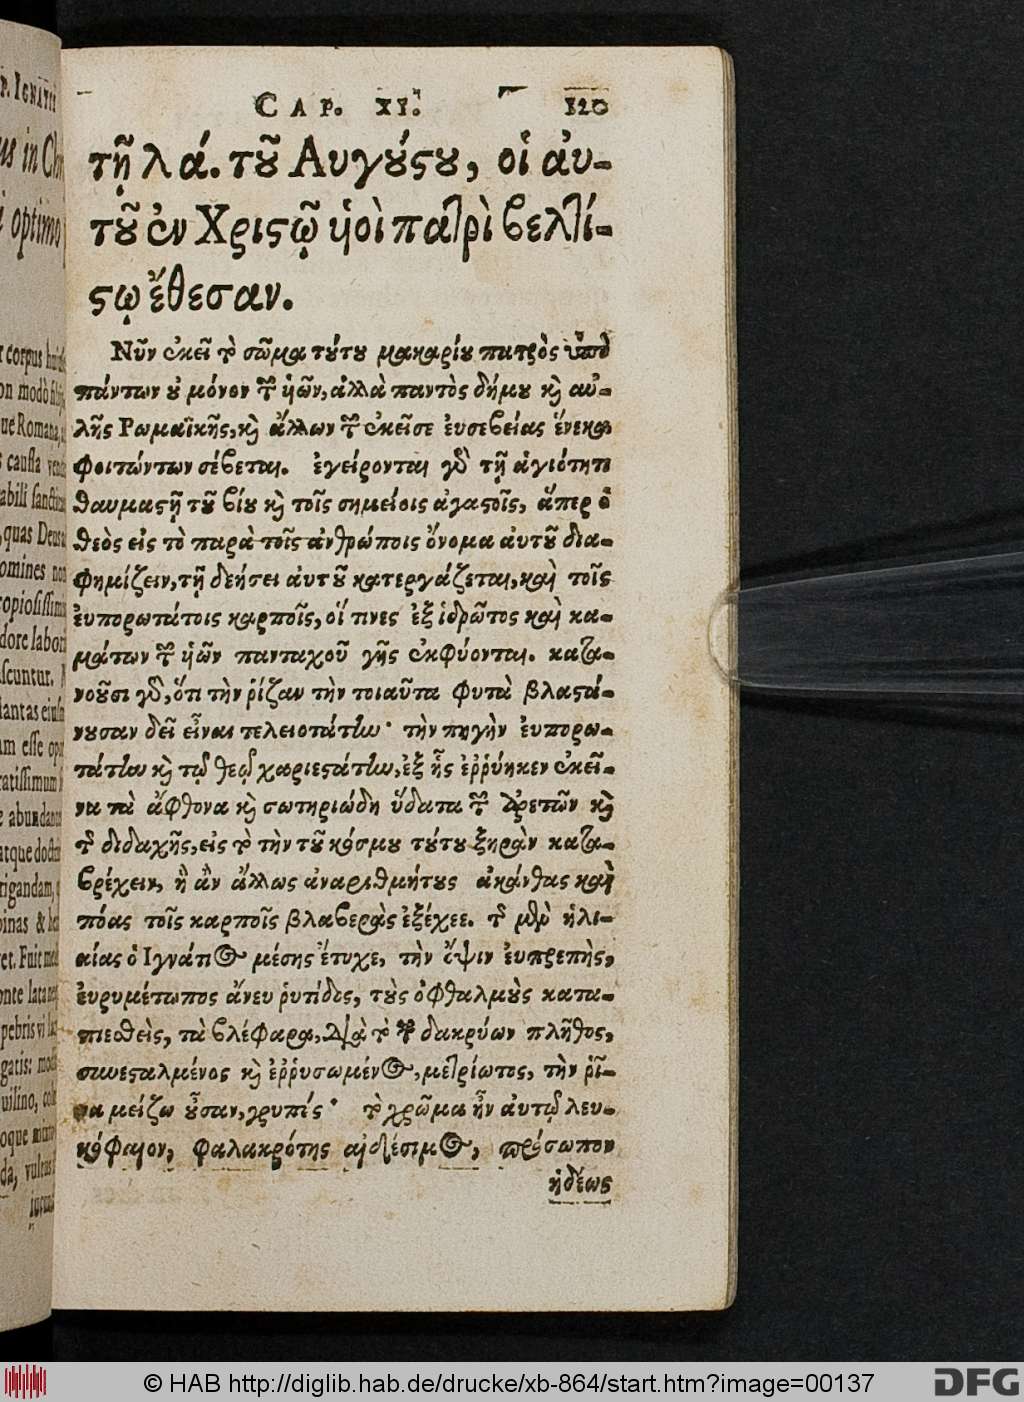 P. IGNATII
us in Ch
i optimo
r corpus huius
on modò filiis
ue Romana,
s caussa
abili sancti
, quas Deus
omines non
copiosissim
dore labor
scuntur.
lantas eius
m esse
ratissimum
e abundan
atque doct
rigandam,
pinas &
et. Fuit me
onte lata
pebris
gatis: mod
uilino, colo
oque
da,
iucun
CAP. XI. 120
τῇ λά. τȣ͂ Αυγȣ́ϛȣ, οἱ ἀυ-
τȣ͂ ἐν Χριϛῷ ὑιοὶ πατρὶ βελτί-
ϛῳ ἔθεσαν.
Νῦν ἐκεῖ τὸ σῶμα τȣ́τȣ μακαρίȣ πατρὸς ὑπὸ
πάντων ȣ̓ μόνον τῶν ὑιῶν, ἀλλὰ παντὸς δήμȣ κὶ αὐ-
λῆς Ρωμαϊκῆς, κὶ ἄλλων τῶν ἐκεῖσε ἐυσεβείας ἕνεκα
φοιτώντων σέβεται. ἐγείρονται γὸ τῇ ἁγιότητι
θαυμαϛῇ τȣ͂ βίȣ κὶ τοῖς σημείοις ἀγαϛοῖς, ἅπερ ὁ
θεὸς εἰς τὸ παρὰ τοῖς ἀνθρώποις ὄνομα ἀυτȣ͂ δια-
φημίζειν, τῇ δεήσει ἀυτȣ͂ κατεργάζεται, καὶ τοῖς
ἐυπορωτάτοις καρποῖς, οἵ τινες ἐξ ἱδρῶτος καὶ κα-
μάτων τῶν ὑιῶν πανταχοῦ γῆς ἐκφύονται. κατα-
νοῦσι γὸ, ὅτι τὴν ῥίζαν τὴν τοιαῦτα φυτὰ βλαϛά-
νȣσαν δεῖ εἶναι τελειοτάτην· τὴν πηγὴν ἐυπορω-
τάτην κὶ τῷ θεῷ χαριεϛάτην, ἐξ ἧς ἐῤῥύηκεν ἐκεῖ-
να τὰ ἄφθονα κὶ σωτηριώδη ὕδατα τῶν ἀρετῶν κὶ
τῆς διδαχῆς, εἰς τὸ τὴν τȣ͂ κόσμȣ τȣ́τȣ ξηρὰν κατα-
βρέχειν, ἢ ἂν ἄλλως ἀναριθμήτȣς ἀκάνθας καὶ
πόας τοῖς καρποῖς βλαβερὰς ἐξέχεε. τῆς μὲν ἡλι-
κίας ὁ Ιγνάτιος μέσης ἔτυχε, τὴν ὄψιν ἐυπρεπὴς,
ἐυρυμέτωπος ἄνευ ῥυτίδος, τȣ̀ς ὀφθαλμȣ̀ς κατα-
πιεσθεὶς, τὰ βλέφαρα, διὰ τὸ τῶν δακρύων πλῆθος,
συνεϛαλμένος κὶ ἐῤῥυσωμένος, μετρίωτος, τὴν ῥῖ-
να μείζω ȣ̓͂σαν, γρυπίς· τὸ χρῶμα ἦν ἀυτῷ λευ-
κόφαιον, φαλακρότης αἰδέσιμος, πρόσωπον
ἡδέως
© HAB http://diglib.hab.de/drucke/xb-864/start.htm?image=00137
DFG